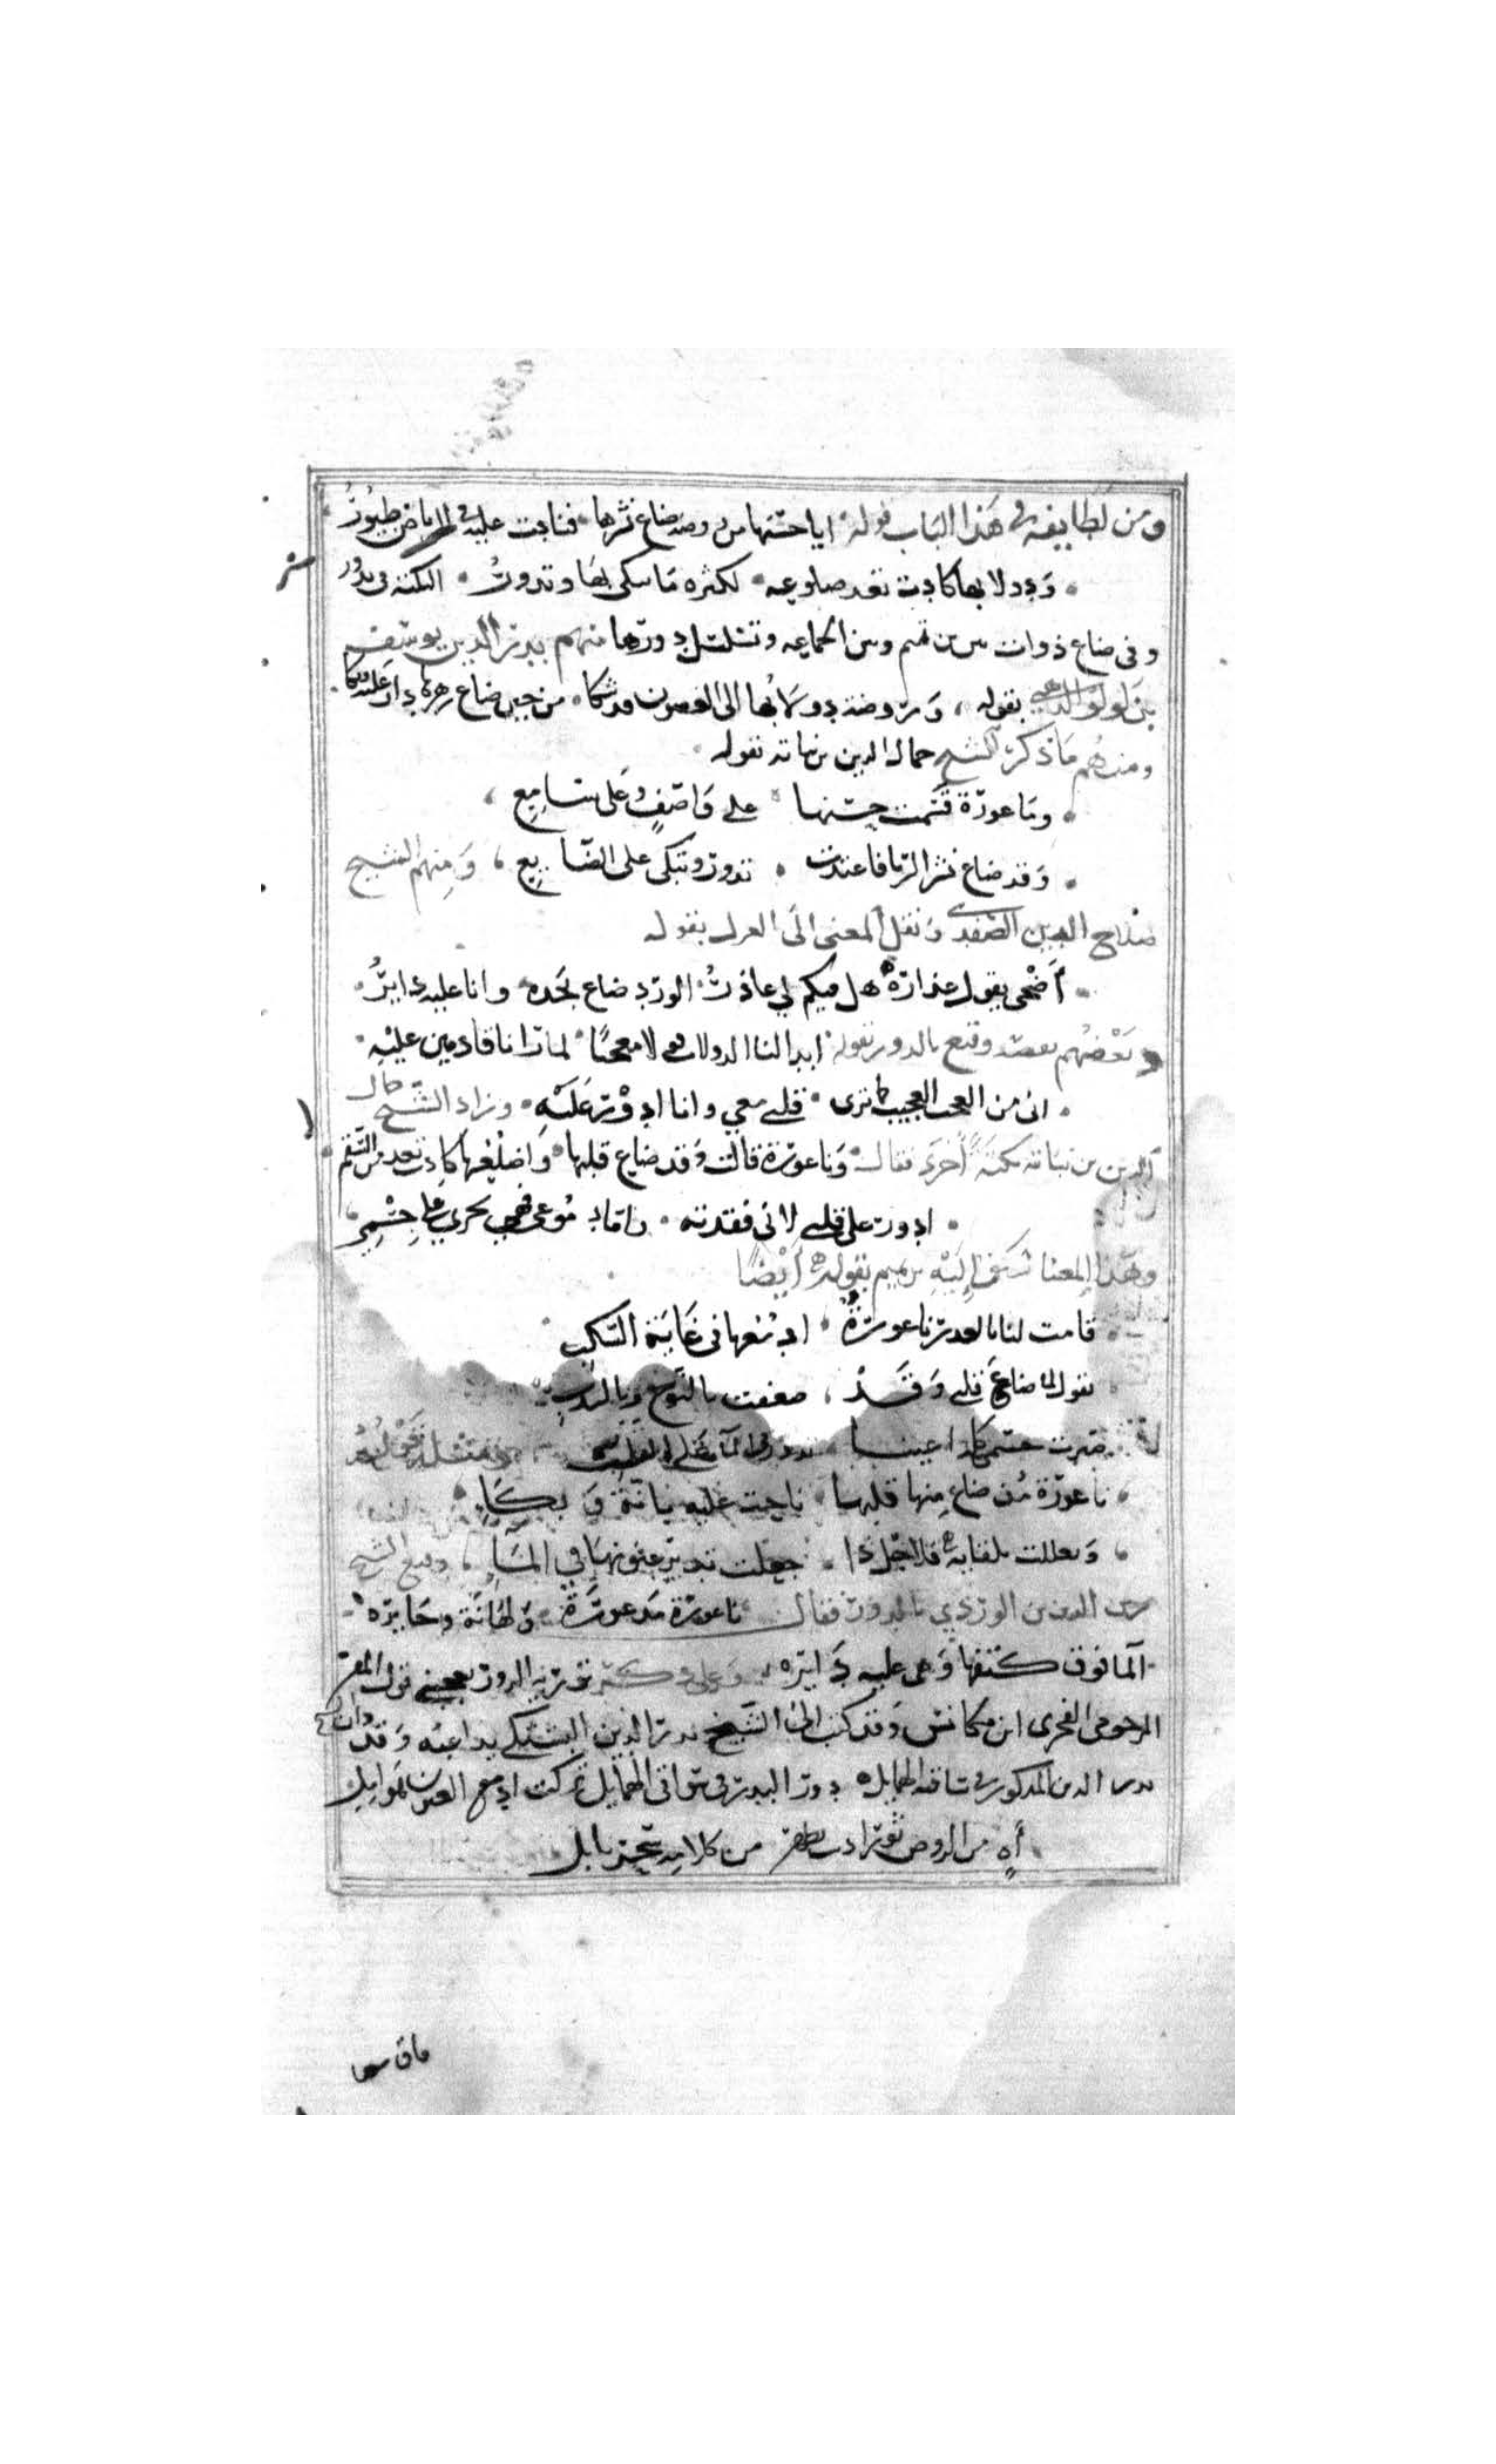 ومن لطايفه في هذا الباب قوله ايا حسنها من روضة ضاع نشرها فناحت عليه في الرياض طيور
ودولابها كادت تعد ضلوعه لكثرة ما يبكي بها وتدور النكتة في تدور
وفي ضاع ذوات بين بن تميم وبين الجماعه وتسلسل دورها منهم بدر الدين يوسف
بن لولو الذهبي بقوله وروضة دولابها الى الغصون قد شكا من حين ضاع زهرها دار عليه وبكا
ومنهم ما ذكره الشيخ جمال الدين بن نباته بقوله
وناعورة قسمت حسنها على واصف وعلى سامع
وقد ضاع نشر الربا فاغتدت تدور وتبكي على الضايع ومنهم الشيخ
صلاح الدين الصفدي ونقل المعنى الى الغزل بقوله
أضحى يقول عذاره هل فيكم لي عاذر الورد ضاع بخده وانا عليه داير
وبعضهم وقنع بالدور بقوله ابدا لنا الدولاب معجبا لما رانا قادمين عليه
اني من العجب العجيب كما ترى قلبي معي وانا ادور عليه وزاد الشيخ جمال
الدين بن نباته نكتة أخرى فقال وناعورة قالت وقد ضاع قلبها واضلعها كادت تعد من السقم
ادور على قلبي لاني فقدته واما دموعي فهي تجري على جسمي
وهذا المعنا سبق إليه بن تميم بقوله أيضا
قامت لنا بالعذر ناعورة ادمعها في غاية السكب
تقول لما ضاع قلبي وقد ضعفت بالنوح وبالندب
صيرت جسمي كله اعينا تدور في الما على القلب
ناعورة مذ ضاع منها قلبها ناحت عليه بانة وبكاء
وتعللت بلقايه فلاجل ذا جعلت تدير عيونها في الماء وقنع الشيخ
زين الدين بن الوردي بالدور فقال ناعورة مذعورة ولهانة وحايره
الما فوق كتفها وهي عليه دايره وعلى ذكر تورية الدور يعجبني قول المقر
المرحومي الفخري ابن مكانس وقد كتب الى الشيخ بدر الدين البشتكي يداعبه وقد
بدر الدين المذكور في ساقيه الهمايل دور البدر في سواقي الهمايل تركت ادمع العيون هوامل
آه من الروض ثور من كلامه سحر بابل